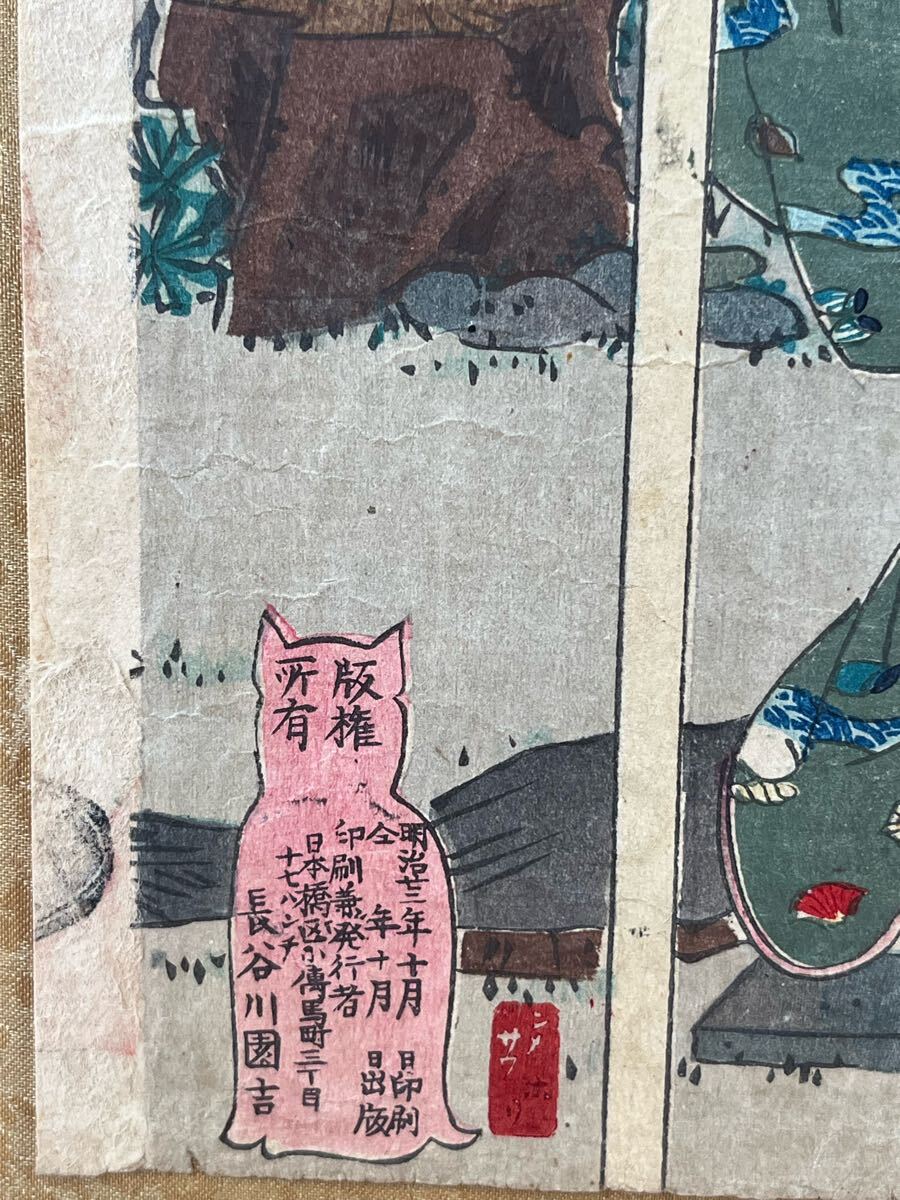 版権
所有
明治廿二年十月 日印刷
仝 年十月 日出版
印刷兼発行者
日本橋区小傳馬町三丁目
十七バンチ
長谷川園吉
サワ
ホリ